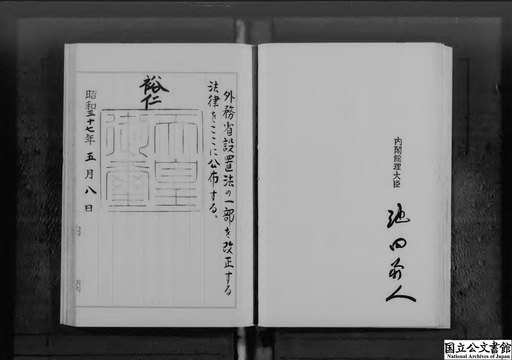 外務省設置法の一部を改正する
法律をここに公布する。
裕仁
天皇
御璽
昭和三十七年五月八日
内閣総理大臣
池田勇人
国立公文書館
National Archives of Japan